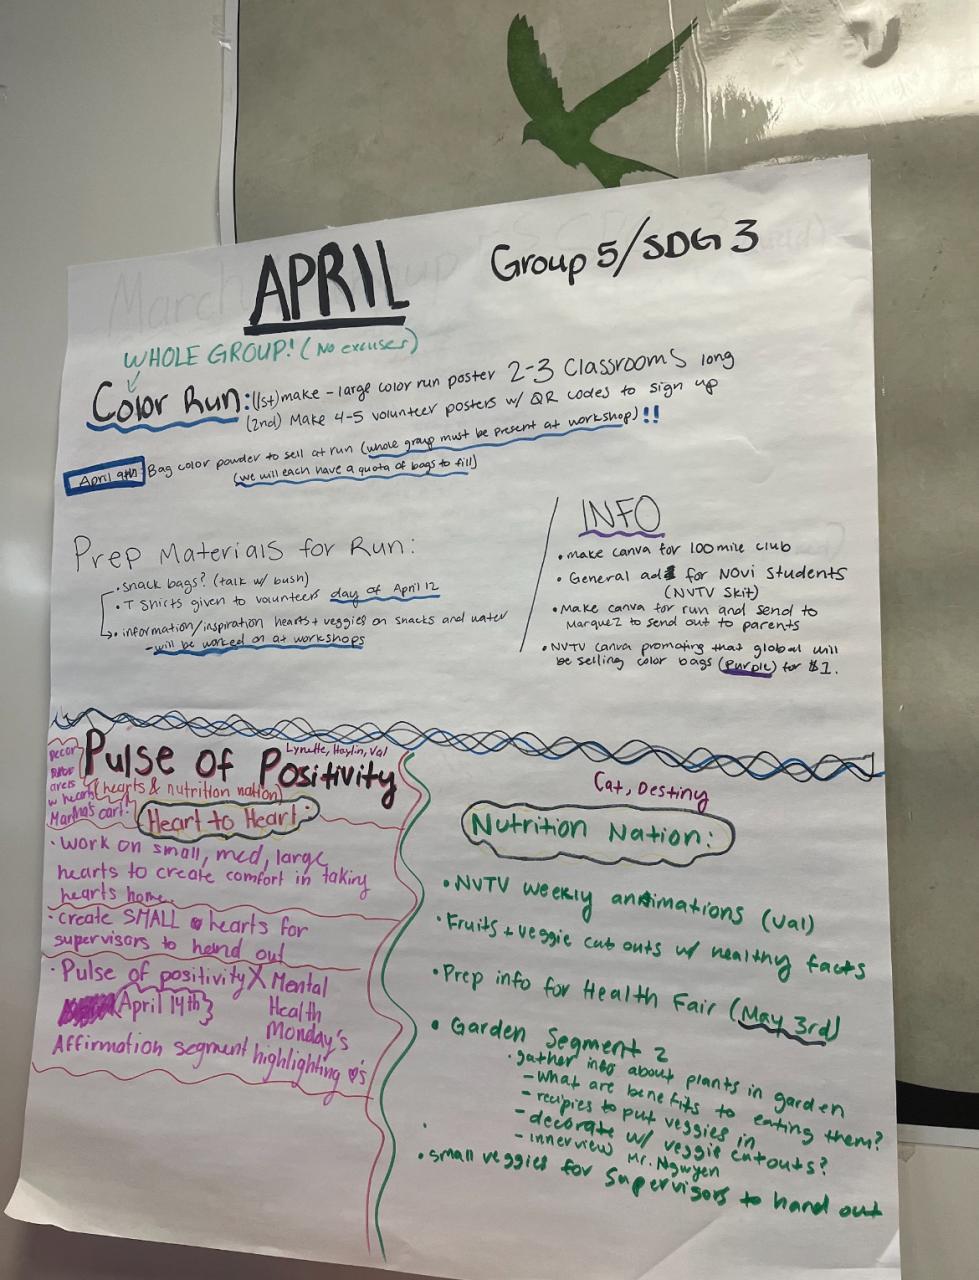 APRIL
Group 5/SDG 3
WHOLE GROUP! (No excuses)
Color Run: (1st) make - large color run poster 2-3 Classrooms long
(2nd) Make 4-5 volunteer posters w/ QR codes to sign up
April 9th: Bag color powder to sell at run (whole group must be present at workshop)!!
(we will each have a quota of bags to fill)
Prep Materials for Run:
• snack bags? (talk w/ bush)
• T Shirts given to volunteers day of April 12
• information/inspiration hearts + veggies on snacks and water
- will be worked on at workshops
INFO
• make canva for 100 mile club
• General ad for NOVI Students
(NVTV Skit)
• Make canva for run and send to
Marquez to send out to parents
• NVTV canva promoting that global will
be selling color bags (purple) for $1.
Pulse of Positivity
Lynette, Haylin, Val
Decor
areas
w hearts
Martha's cart!
(hearts & nutrition nation)
Heart to Heart:
• Work on small, med, large
hearts to create comfort in taking
hearts home.
• create SMALL hearts for
supervisors to hand out
• Pulse of positivity X Mental
April 14th} Health
Monday's
Affirmation segment highlighting ♡'s
Cat, Destiny
Nutrition Nation:
• NVTV weekly annimations (Val)
• Fruits + veggie cut outs w/ healthy facts
• Prep info for Health Fair (May 3rd)
• Garden Segment 2
• gather info about plants in garden
- what are benefits to eating them?
- recipies to put veggies in
- decorate w/ veggie cutouts?
- innerview Mr. Ngwyen
• small veggies for supervisors to hand out